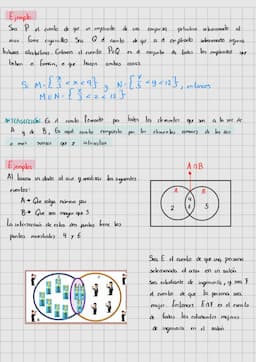 Ejemplo
Sea P el evento de que un empleado de una compañía seleccionado al
azar fume cigarrillos. Sea Q el evento de que el empleado seleccionado ingiera
bebidas alcohólicas. Entonces el evento P∪Q es el conjunto de todos los empleados que
beben o fuman, o que hacen ambas cosas.
Si M = { x | 3 < x < 9 } y N = { y | 5 < y < 12 }, entonces
M∪N = { z | 3 < z < 12 }
INTERSECCIÓN: Es el evento formado por todos los elementos que son a la vez de
A y de B. Es aquel evento compuesto por los elementos comunes de los dos
o más sucesos que se intersectan.
Ejemplos
Al lanzar un dado al aire y analizar los siguientes
eventos:
A → Que salga número par
B → Que sea mayor que 3
La intersección de estos dos puntos tiene los
puntos muestrales 4 y 6
A∩B
A B
2 4 6 5
Sea E el evento de que una persona
seleccionada al azar en un salón
sea estudiante de ingeniería, y sea F
el evento de que la persona sea
mujer. Entonces E∩F es el evento
de todas las estudiantes mujeres
de ingeniería en el salón.